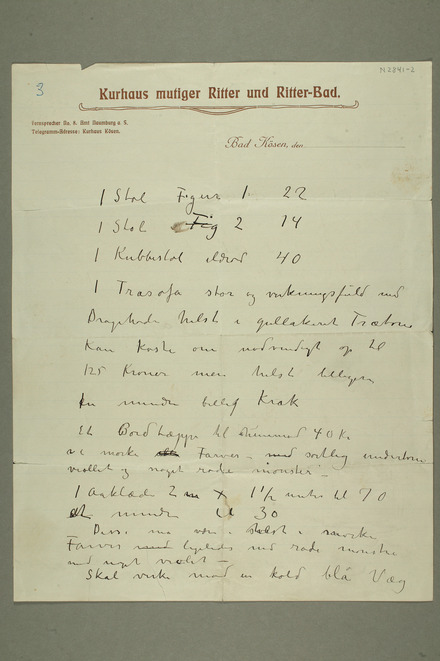 N 2841-2
3
Kurhaus mutiger Ritter und Ritter-Bad.
Fernsprecher No. 6. Amt Naumburg a. S.
Telegramm-Adresse: Kurhaus Kösen.
Bad Kösen, den
1 Stol Figur 1 22
1 Stol Fig 2 14
1 Kubbestol 40
1 Træsofa stor og virkningsfuld med
Dragehoder helst i gullakeret Træ
kan koste om nødvendigt op til
125 Kroner men helst billigere
en mindre billig Krak
Et Bordtæppe til 40 Kr
i mørke Farver med undertone
violet og noget røde mønster
1 Aaklæde 2 m x 1½ meter til 70
et mindre til 30
Disse må være helst i mørke
Farver ligeledes med røde mønstre
med noget violet
Skal virke mod en kold blå Væg